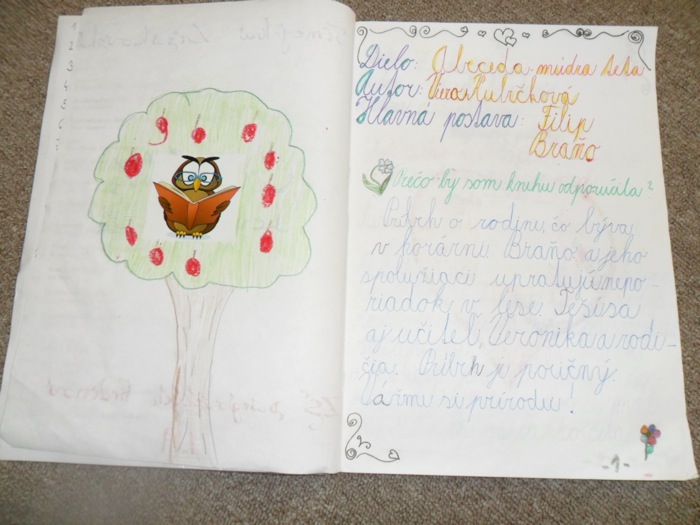 Dielo: Abeceda múdra teta
Autor: Viera Rubričková
Hlavná postava: Filip
Braňo
Prečo by som knihu odporúčala?
Príbeh o rodine, čo býva
v horárni. Braňo a jeho
spolužiaci upratujú nepo-
riadok v lese. Tešia sa
aj učiteľ, Veronika a rodi-
čia. Príbeh je poučný.
Vážme si prírodu!
-1-